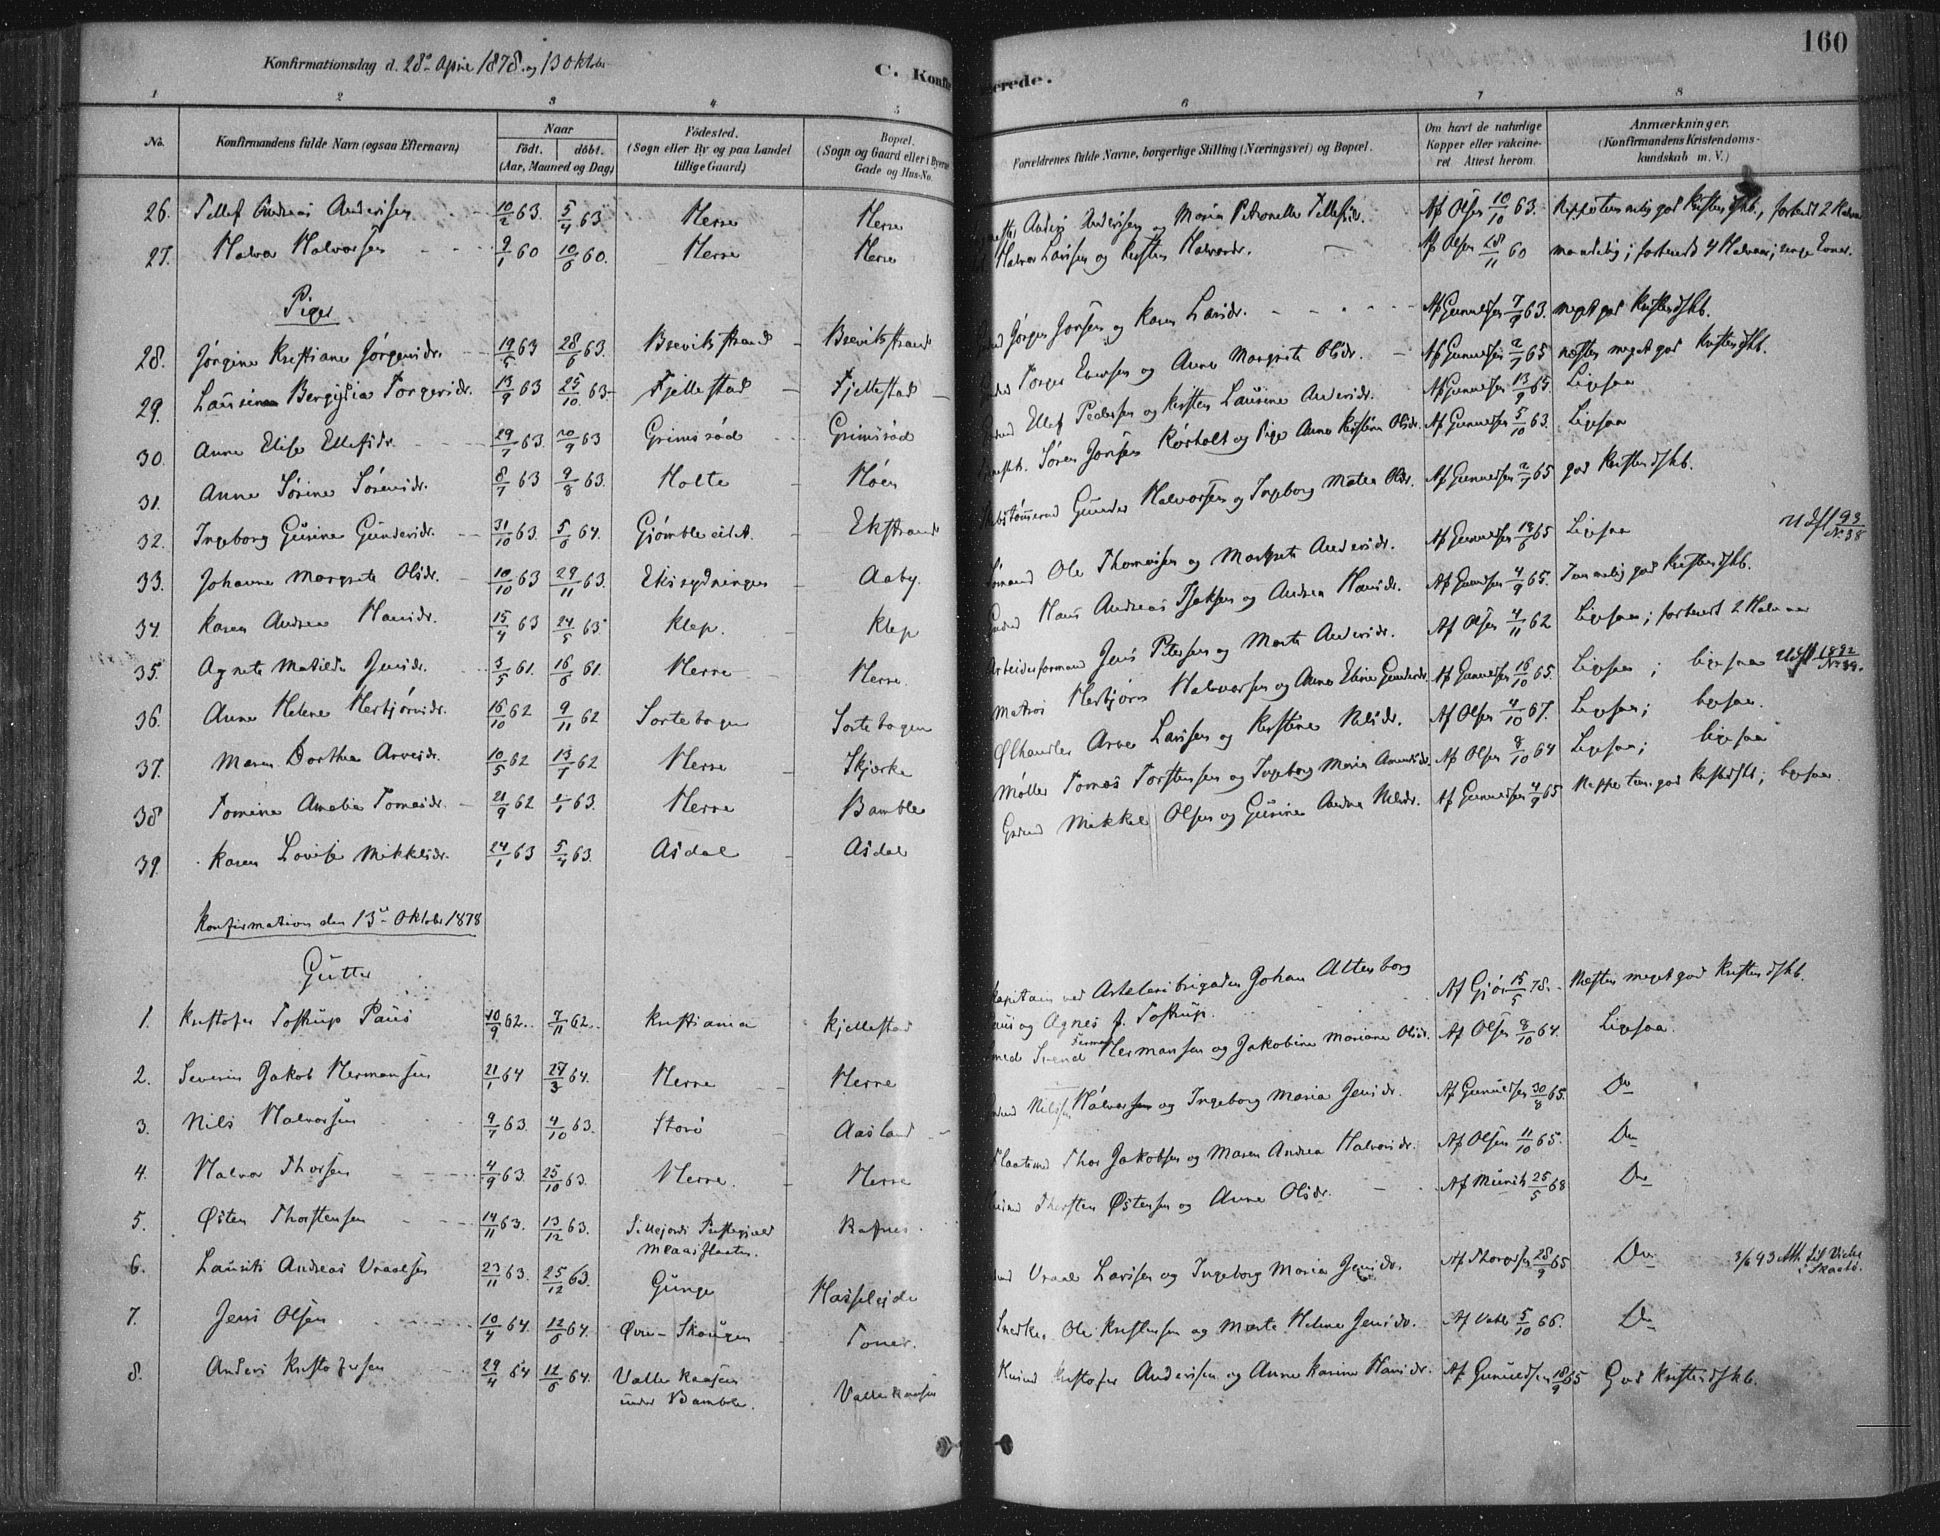 160
Konfirmationsdag d. 28de April 1878 og 13 Oktober
C. Konfirmerede.
1 2 3 4 5 6 7 8
No. Konfirmandens fulde Navn (ogsaa Efternavn) Naar födt. döbt. (Aar, Maaned og Dag) Födested. (Sogn eller By og paa Landet tillige Gaard) Bopæl. (Sogn og Gaard eller i Byerne Gade og Hus-No. Forældrenes fulde Navne, borgerlige Stilling (Næringsvei) og Bopæl. Om havt de naturlige Kopper eller vakcineret Attest herom. Anmærkninger. (Konfirmandens Kristendomskundskab m. V.)
26. Tellef Andreas Andersen 10/2 63. 5/4 63 Herre Herre Anders Andersen og Maria Petronella Tellefsdr. Af Olsen 10/10 63. Neppe temmelig god Kristendskb., forberedt 2 Halvaar
27. Halvor Halvorsen 9/1 60 10/6 60. Herre Herre Halvor Larsen og Kirsten Halvorsdr. Af Olsen 28/11 60 maadelig; forberedt 4 Halvaar; svage Evner.
Piger
28. Jørgine Kristiane Jørgensdr. 19/5 63 28/6 63. Brevikstrand Brevikstrand Jørgen Jonsen og Karen Larsdr. Af Gunnelsen 7/9 63. meget god Kristendskb.
29. Laurine Bergithe Torgersdr. 13/9 63 25/10 63 Fjellestad Fjellestad Torger Evensen og Anne Margrete Olsdr. Af Gunnelsen 2/7 65 næsten meget god Kristendskb.
30. Anne Elise Ellefsdr. 29/7 63. 20/9 63 Grimsrød Grimsrød Ellef Pedersen og Kirsten Laurine Andersdr. Af Gunnelsen 13/9 65. Ligesaa
31. Anne Sørine Sørensdr. 8/7 63 9/8 63. Holte Høen Søren Jonsen Rørholt og Pige Anne Kirstine Olsdr. Af Gunnelsen 5/10 63. Ligesaa
32. Ingeborg Gurine Gundersdr. 31/10 63. 5/6 64. Gjømle eidet Ekstrand Gunder Halvorsen og Ingeborg Matea Olsdr. Af Gunnelsen 2/7 65 god Kristendskb.
33. Johanne Margrete Olsdr. 10/10 63 29/11 63. Eksrydningen Aaby. Ole Thomassen og Margrete Andersdr. Af Gunnelsen 18/6 65 Ligesaa Udst 93 No 38
34. Karen Andrea Hansdr. 15/4 63 24/5 63 Klep. Klep Hans Andreas Isaksen og Andrea Hansdr. Af Gunnelsen 4/9 65. Temmelig god Kristendskb.
35. Agnete Matilde Jensdr. 3/5 61. 16/6 61. Herre Herre. Arbeidsformand Jens Petersen og Marte Andersdr. Af Olsen 4/11 62 Ligesaa; forberedt 2 Halvaar
36. Anne Helene Herbjørnsdr. 16/10 62 9/11 62 Sortebogen Sortebogen Matros Herbjørn Halvorsen og Anne Eline Gundersdr. Af Gunnelsen 16/10 65. Ligesaa; ligesaa Udst 1892 No 39.
37. Maren Dorthea Arvesdr. 10/5 62 13/7 62 Herre Skjerke Ølhandler Arve Larsen og Kirstine Nilsdr. Af Olsen 4/10 67. Ligesaa; ligesaa.
38 Tomine Amalie Tomasdr. 21/9 62 1/1 63. Herre Bamble Møller Tomas Torstensen og Ingeborg Maria Amundsdr. Af Olsen 8/10 64 Ligesaa; ligesaa
39. Karen Lovise Mikkelsdr. 24/1 63 5/4 63. Asdal Asdal Mikkel Olsen og Gurine Andrea Nilsdr. Af Gunnelsen 4/9 65 Neppe tem. god Kristendskb; ligesaa.
Konfirmation den 13de Oktober 1878
Gutter
1. Kristofer Tostrup Paus 10/9 62. 7/11 62. Kristiania Kjellestad Kapitain ved Artelleribrigaden Johan Altenborg Paus og Agnes f. Tostrup. Af Gjør 15/5 78. Næsten meget god Kristendskb.
2. Severin Jakob Hermansen 21/1 64 27/3 64. Herre Herre Svend Herman Hermansen og Jakobine Mariane Olsdr. Af Olsen 8/10 64. Ligesaa.
3. Nils Halvorsen 9/7 63. 4/10 63. Storø Aasland Nilssen Halvorsen og Ingeborg Maria Jensdr. Af Gunnelsen 30/8 65. Do
4. Halvor Thorsen 4/9 63. 25/10 63. Herre. Herre Pladsmd Thor Jakobsen og Maren Andrea Halvorsdr. Af Olsen 11/10 65. Do
5. Østen Thorstensen 14/11 63. 13/12 63. Sillejords Prestegjeld Rafnes. Thorsten Østensen og Anne Olsdr. Af Munch 25/5 68 Do
6. Laurits Andreas Vraalsen 23/11 63. 25/12 63. Gunge Hasselejde Vraal Larsen og Ingeborg Maria Jensdr. Af Thoresen 28/9 65 Do 3/6 93 Att. til Vielse i Skaatø.
7. Jens Olsen 10/4 64. 12/6 64. Øvre-Skaugen Toner. Snedker Ole Kristensen og Marte Helene Jensdr. Af Vable 5/10 66. Do
8. Anders Kristofersen 29/4 64 12/6 64. Valle Kaasen under Bamble. Valle Kaasen Kristofer Andersen og Anne Karine Hansdr. Af Gunnelsen 18/9 65 God Kristendskb.